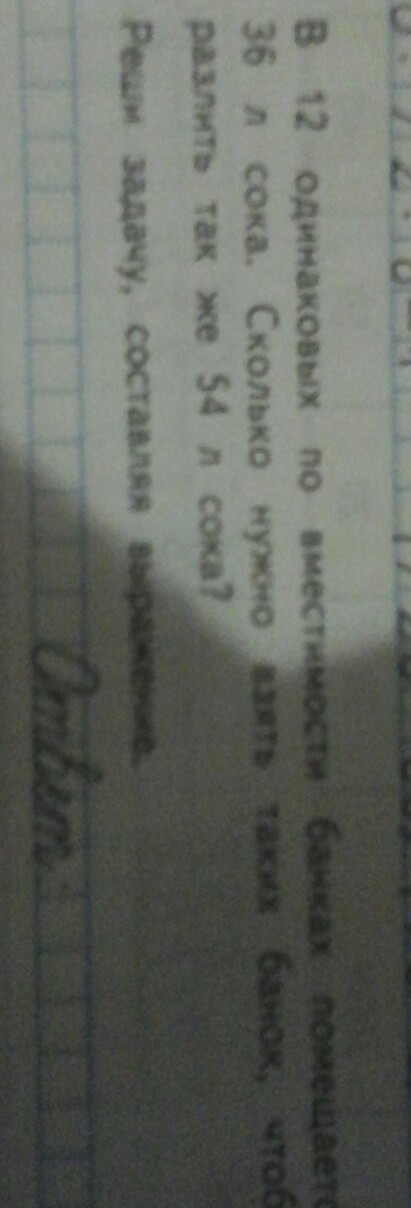 В 12 одинаковых по вместимости банках помещаетс
36 л сока. Сколько нужно взять таких банок, чтоб
разлить так же 54 л сока?
Реши задачу, составляя выражение.
Ответ: